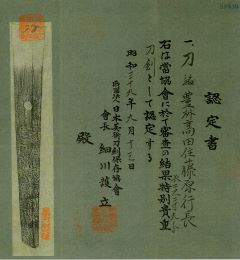 認定書
一、刀 銘 豊州高田住藤原行長
右は當協會に於て審査の結果特別貴重
刀劍として認定する
昭和三十九年九月十三日
財團法人日本美術刀剣保存協會
會長 細川護立
殿